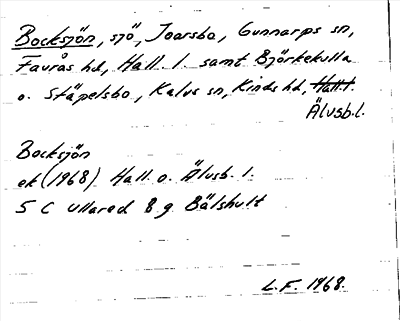 Bocksjön, sjö, Joarsbo, Gunnarps sn,
Faurås hd, Hall. l. samt Björkekulla
o. Stäpelsbo, Kalvs sn, Kinds hd, Hall. l.
Älvsb. l.
Bocksjön
ek (1968) Hall. o. Älvsb. l.
5 C Ullared 8 g Bälshult
L.F. 1968.